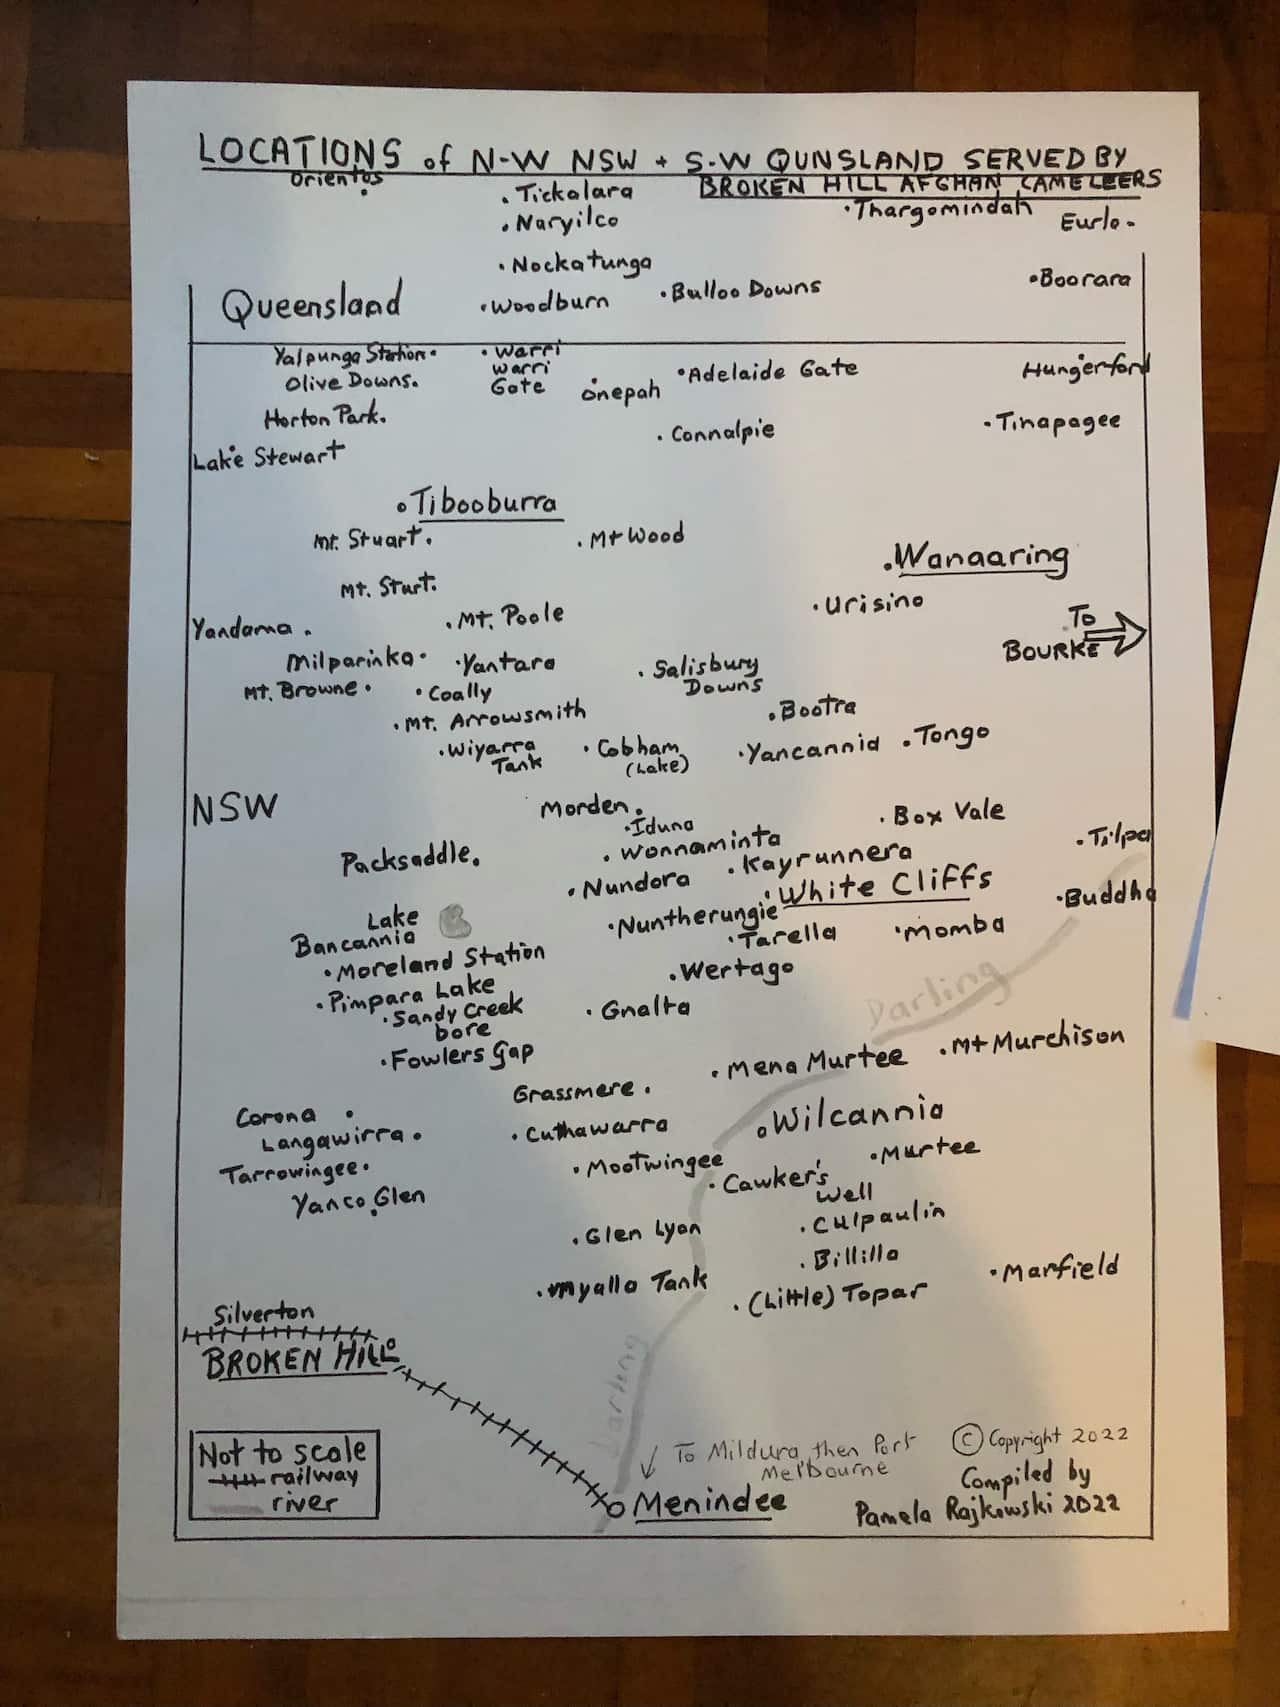 LOCATIONS of N-W NSW + S-W QUNSLAND SERVED BY
BROKEN HILL AFGHAN CAMELEERS
Orientos
Tickalara
Naryilco
Thargomindah
Eurlo
Nockatunga
Boorara
Queensland
Woodburn
Bulloo Downs
Yalpunga Station
Warri
Warri
Gate
Olive Downs
Onepah
Adelaide Gate
Hungerford
Horton Park
Connalpie
Tinapagee
Lake Stewart
Tibooburra
Mt. Stuart
Mt Wood
Wanaaring
Mt. Sturt
Urisino
Yandama
Mt. Poole
To
BOURKE
Milparinka
Yantara
Salisbury
Downs
Mt. Browne
Coally
Mt. Arrowsmith
Bootra
Wiyarra
Tank
Cobham
(Lake)
Yancannia
Tongo
NSW
Morden
Iduna
Box Vale
Wonnaminta
Tilpa
Packsaddle
Kayrunnera
Nundora
White Cliffs
Buddha
Lake
Bancannia
Nuntherungie
Tarella
Momba
Moreland Station
Wertago
Pimpara Lake
Darling
Sandy Creek
bore
Gnalta
Fowlers Gap
Mena Murtee
Mt Murchison
Grassmere
Corona
Cuthawarra
Wilcannia
Langawirra
Tarrowingee
Mootwingee
Murtee
Yanco Glen
Cawker's
Well
Culpaulin
Glen Lyon
Billilla
Marfield
Myalla Tank
(Little) Topar
Silverton
BROKEN HILL
Darling
Not to scale
railway
river
To Mildura, then Port
Melbourne
Menindee
© Copyright 2022
Compiled by
Pamela Rajkowski 2022